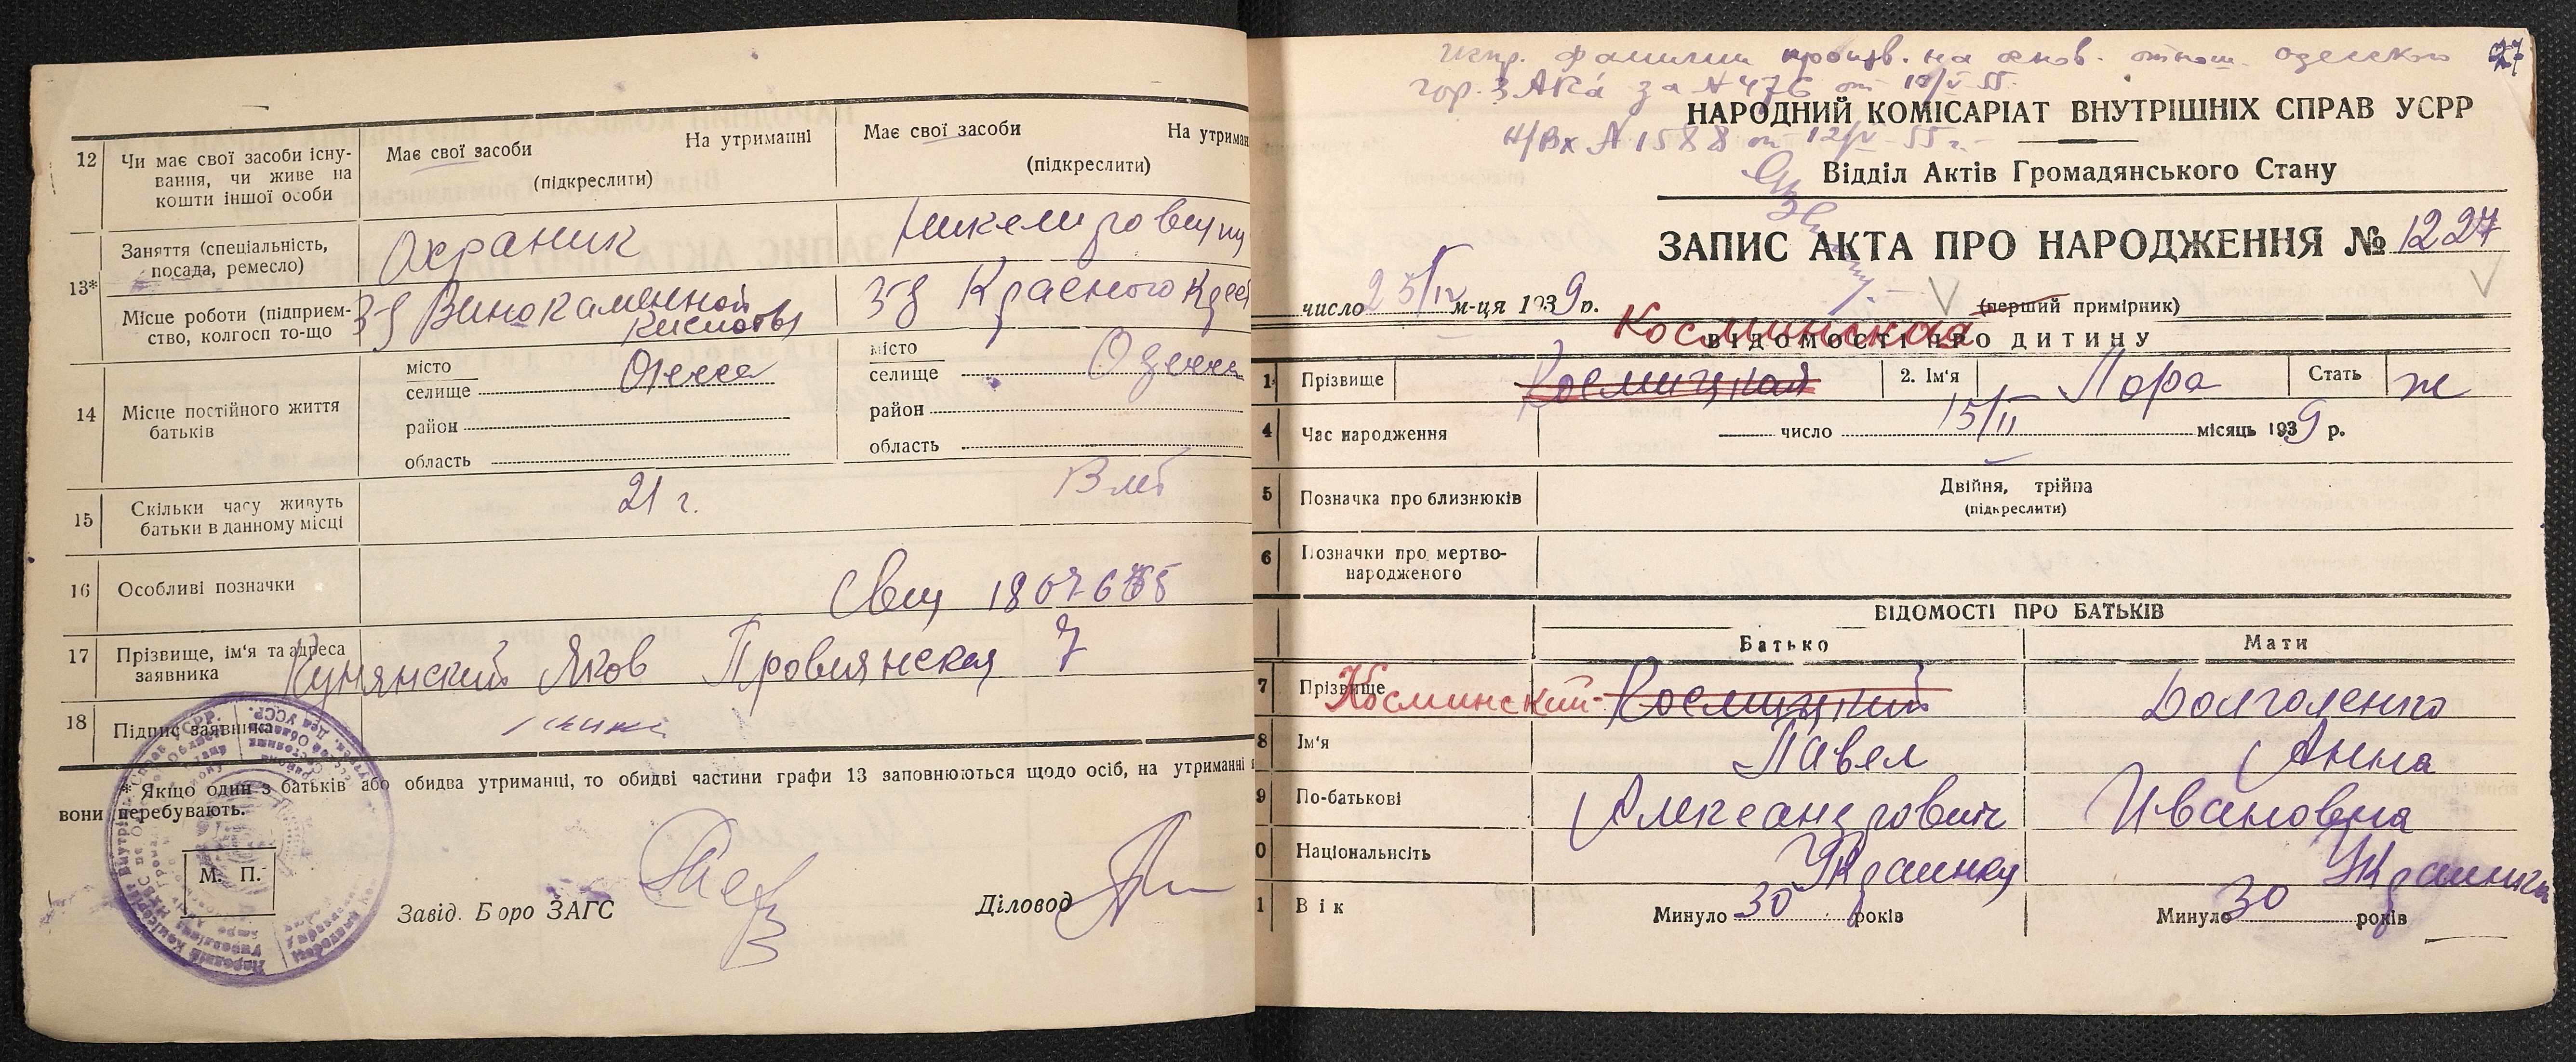 12 Чи має свої засоби існування, чи живе на кошти іншої особи
Має свої засоби На утриманні
(підкреслити)
Має свої засоби На утриман
(підкреслити)
13* Заняття (спеціальність, посада, ремесло)
Охраник
Місце роботи (підприємство, колгосп то-що
З-д Винокаменной кислоты
З-д Красного Крест
14 Місце постійного життя батьків
місто
селище Одесса
район
область
місто
селище Одесса
район
область
15 Скільки часу живуть батьки в данному місці
21 г.
16 Особливі позначки
17 Прізвище, ім'я та адреса заявника
Яков 7
18 Підпис заявника
* Якщо один з батьків або обидва утриманці, то обидві частини графи 13 заповнюються щодо осіб, на утриманні
вони перебувають.
М. П.
Завід. Бюро ЗАГС
Діловод
27
испр. фамилии произв. на основ. отнош. одесского
гор. ЗАГСа за № 476 от 10/V 55
Н/Вх № 1588 от 12/V-55 г.
НАРОДНИЙ КОМІСАРІАТ ВНУТРІШНІХ СПРАВ УСРР
Відділ Актів Громадянського Стану
ЗАПИС АКТА ПРО НАРОДЖЕННЯ № 1227
число 25/IV м-ця 1939 р.
(перший примірник)
Косминская
ВІДОМОСТІ ПРО ДИТИНУ
1 Прізвище Космицкая 2. Ім'я Лора Стать ж
4 Час народження число 15/II місяць 1939 р.
5 Позначка про близнюків
Двійня, трійна
(підкреслити)
6 Позначки про мертвонародженого
ВІДОМОСТІ ПРО БАТЬКІВ
Батько Мати
7 Прізвище Косминский Космицкий Долголенко
8 Ім'я Павел Анна
9 По-батькові Александрович Ивановна
0 Національність Украинец Украинка
1 Вік Минуло 30 років Минуло 30 років